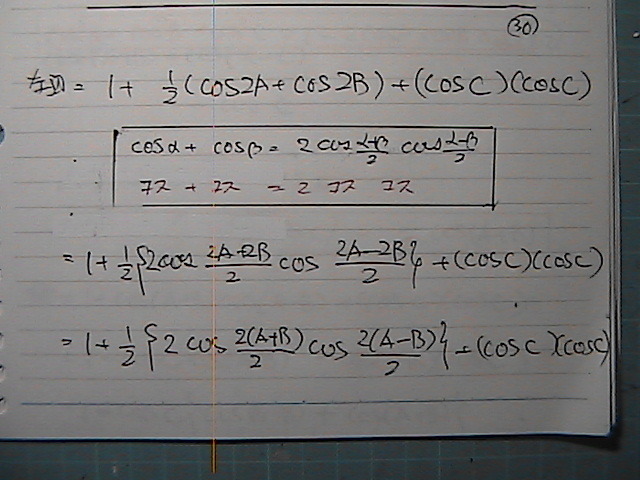 ㉚
左辺 = 1 + 1/2 (cos2A + cos2B) + (cosC)(cosC)
cosα + cosβ = 2 cos (α+β)/2 cos (α-β)/2
コス + コス = 2 コス コス
= 1 + 1/2 {2cos (2A+2B)/2 cos (2A-2B)/2} + (cosC)(cosC)
= 1 + 1/2 {2 cos 2(A+B)/2 cos 2(A-B)/2} + (cosC)(cosC)